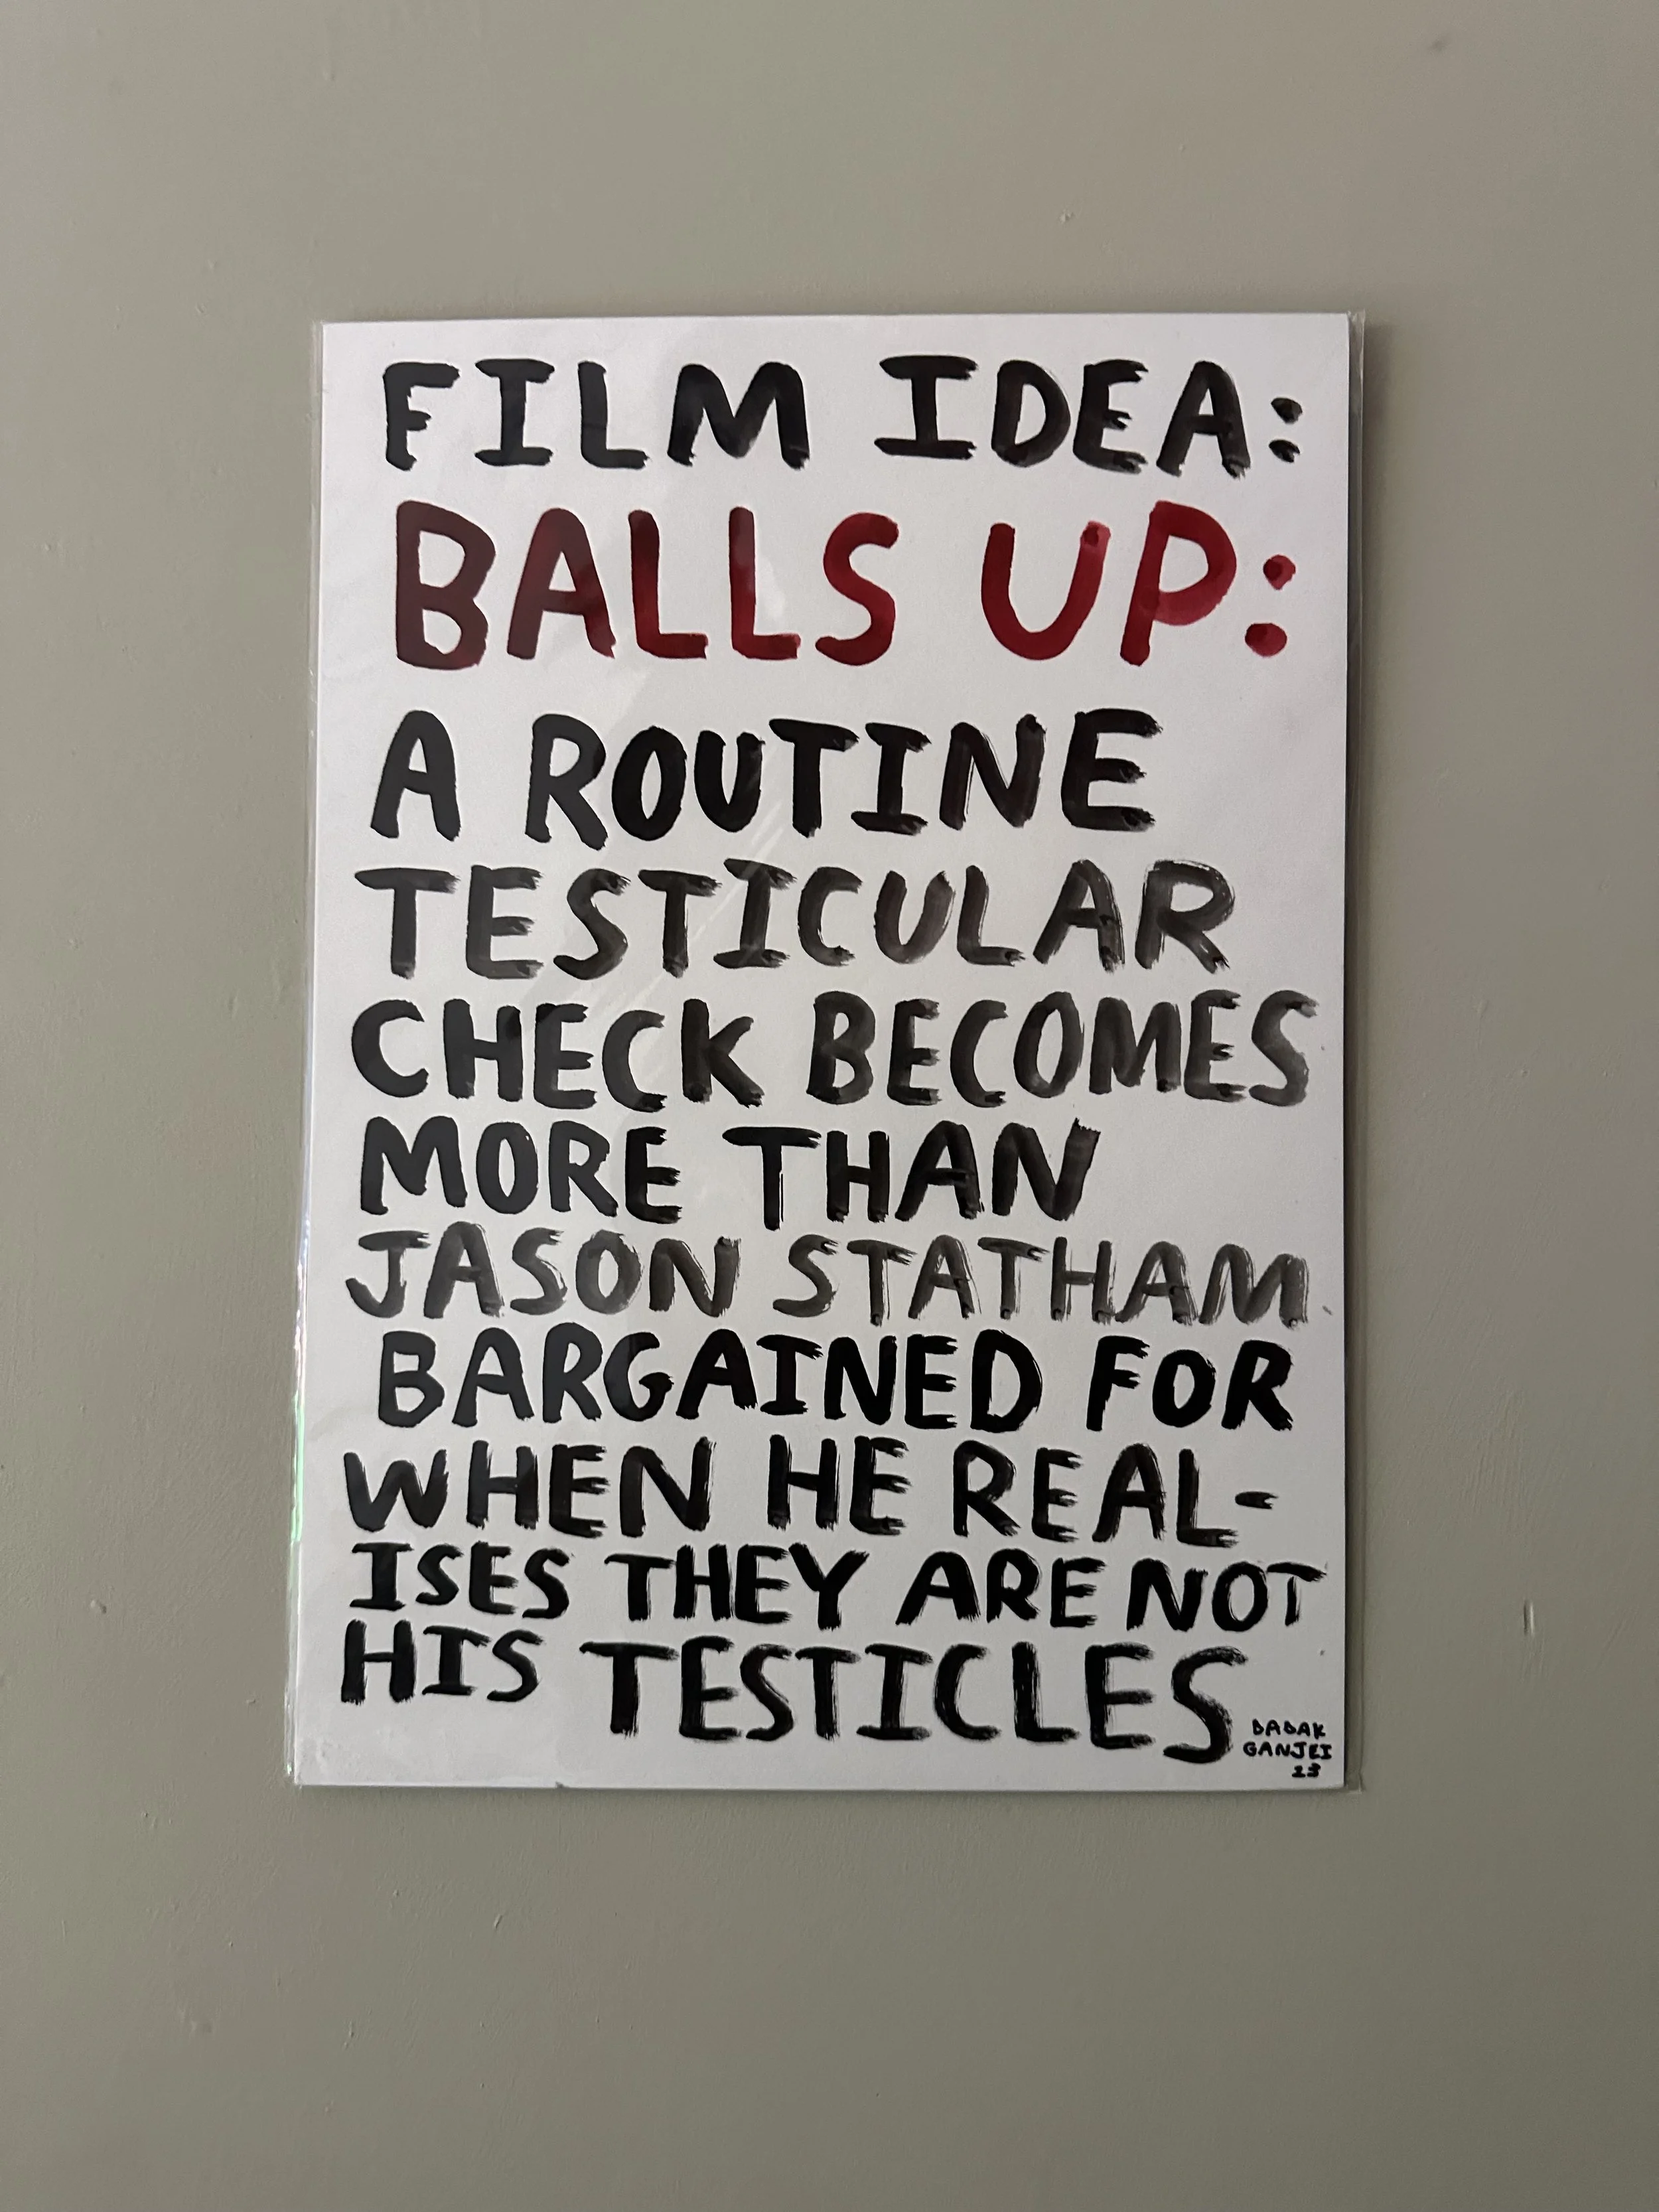 FILM IDEA:
BALLS UP:
A ROUTINE
TESTICULAR
CHECK BECOMES
MORE THAN
JASON STATHAM
BARGAINED FOR
WHEN HE REAL-
ISES THEY ARE NOT
HIS TESTICLES
BABAK
GANJEI
23